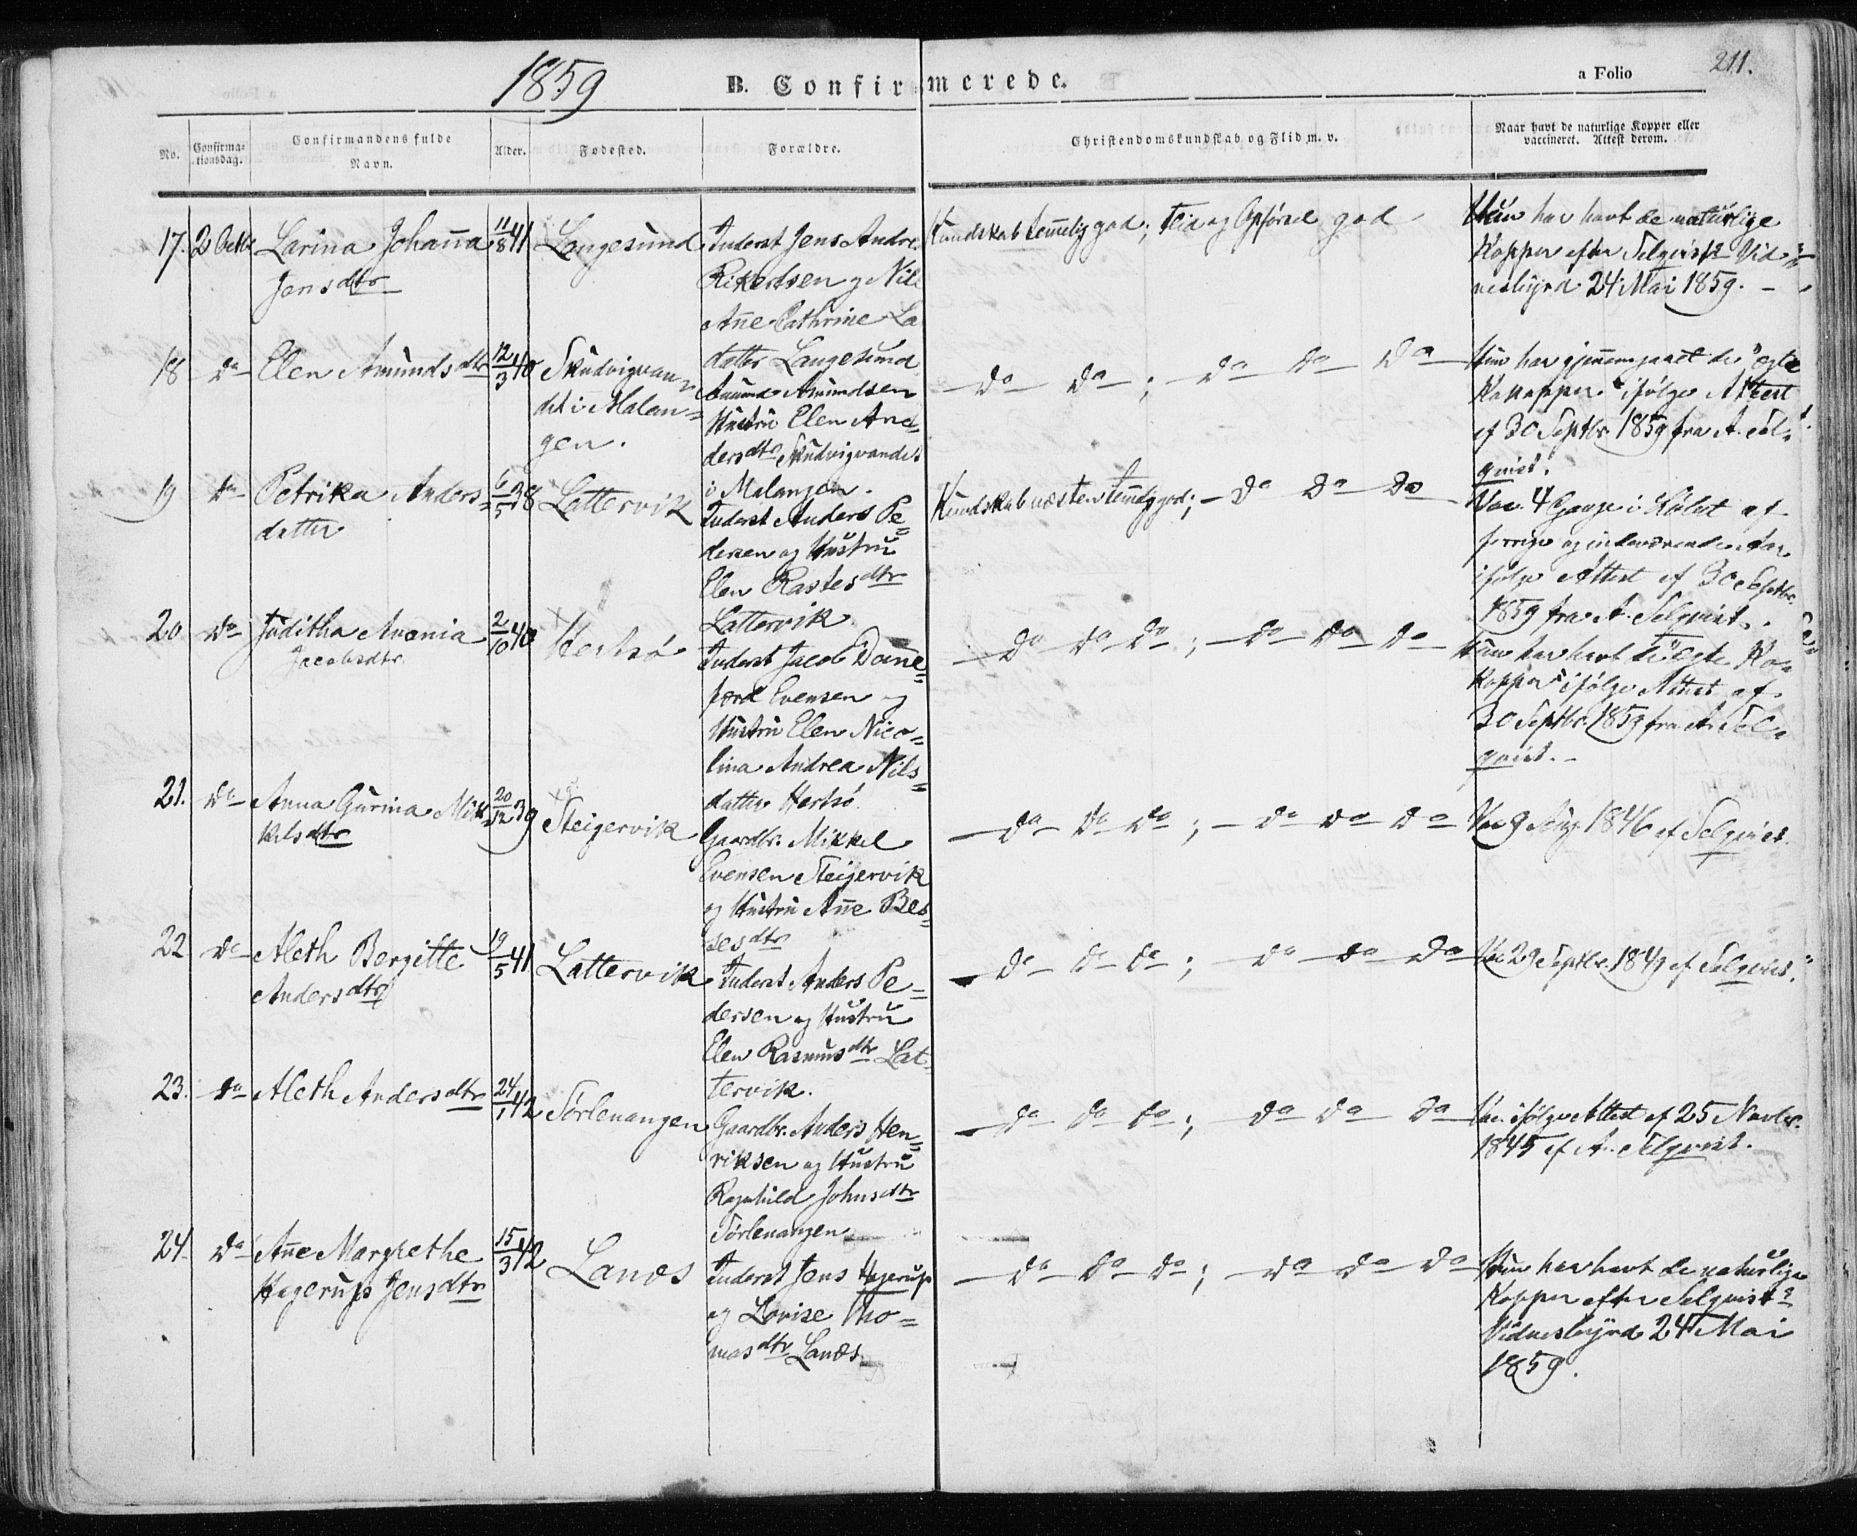 1859
B. Confirmerede.
a Folio
211.
No.
Confirma-
tionsdag.
Confirmandens fulde
Navn.
Alder.
Fødested.
Forældre.
Christendomskundskab og Flid m. v.
Naar havt de naturlige Kopper eller
vaccineret. Attest derom.
17. 2 Octbr Larina Johanna 11/8 41 Langesund
Jensdtr
Inderst Jens Andr.
Rikertsen og Nil
Anne Cathrine La
datter Langesund
Kundskab temelig god; Flid og Opførsel god
Hun har havt de naturlige
Kopper efter Selqvists Vid=
nesbyrd 24 Mai 1859. -
18 do Elen Amundsdtr 12/3 40 Skudvigvan=
det i Malan=
gen.
Amund Amundsen
Hustru Elen An-
dersdtr Skudvigvandet
i Malangen.
do do ; do do do
Hun har gjennemgaaet de "ægte
Kokopper" ifølge Attest
af 30 Septbr 1859 fra A. Sel=
qvist.
19 do Petrika Anders= 6/5 38 Lattervik
datter
Inderst Anders Pe=
dersen og Hustru
Elen Rastesdtr
Lattervik
Kundskab næsten temelig god; - do do do
Vac. 4 Gange i Løbet af
forrige og indeværende Aar
ifølge Attest af 30 Septbr.
1859 fra A. Selqvist.
20 do Juditha Anania 2/10 40 Hertsø
Jacobsdtr.
Inderst Jacob Danne=
ford Evensen og
Hustru Elen Nico=
lina Andrea Nils=
datter Hertsø.
do do do ; do do do
Hun har havt de ægte Ko=
kopper ifølge Attest af
30 Septbr. 1859 fra A. Sel=
qvist. -
21. do Anna Gurina Mik= 20/12 39 Steigervik
kelsdtr
Gaardbr. Mikkel
Evensen Steigervik
og Hustru Anne Bes=
sesdtr
do do do ; do do do
Vac 9 Aug 1846 af Selqvist.
22 do Aleth Bergitte 19/5 41 Lattervik
Andersdtr
Inderst Anders Pe=
dersen og Hustru
Elen Rasmusdtr Lat=
tervik.
do do do ; do do do
Vac 29 Septbr. 1849 af Selqvist.
23. do Aleth Andersdtr 24/1 42 Sørlenangen
Gaardbr. Anders Hen=
riksen og Hustru
Ragnhild Johnsdtr
Sørlenangen
do do do ; do do do
Vac. ifølge Attest af 25 Novbr.
1845 af A. Selqvist.
24. do Anne Margrethe 15/3 42 Lanæs
Hagerups Jensdtr
Inderst Jens Hagerup
og Lovise Tho=
masdtr Lanæs
do do do ; do do do
Hun har havt de naturlige
Kopper efter Selqvists
Vidnesbyrd 24 Mai
1859.